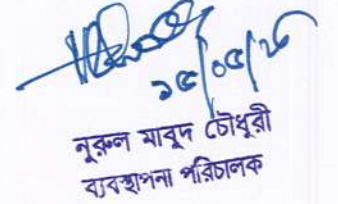 ১৫/০৫/২৫
নূরুল মাবুদ চৌধুরী
ব্যবস্থাপনা পরিচালক